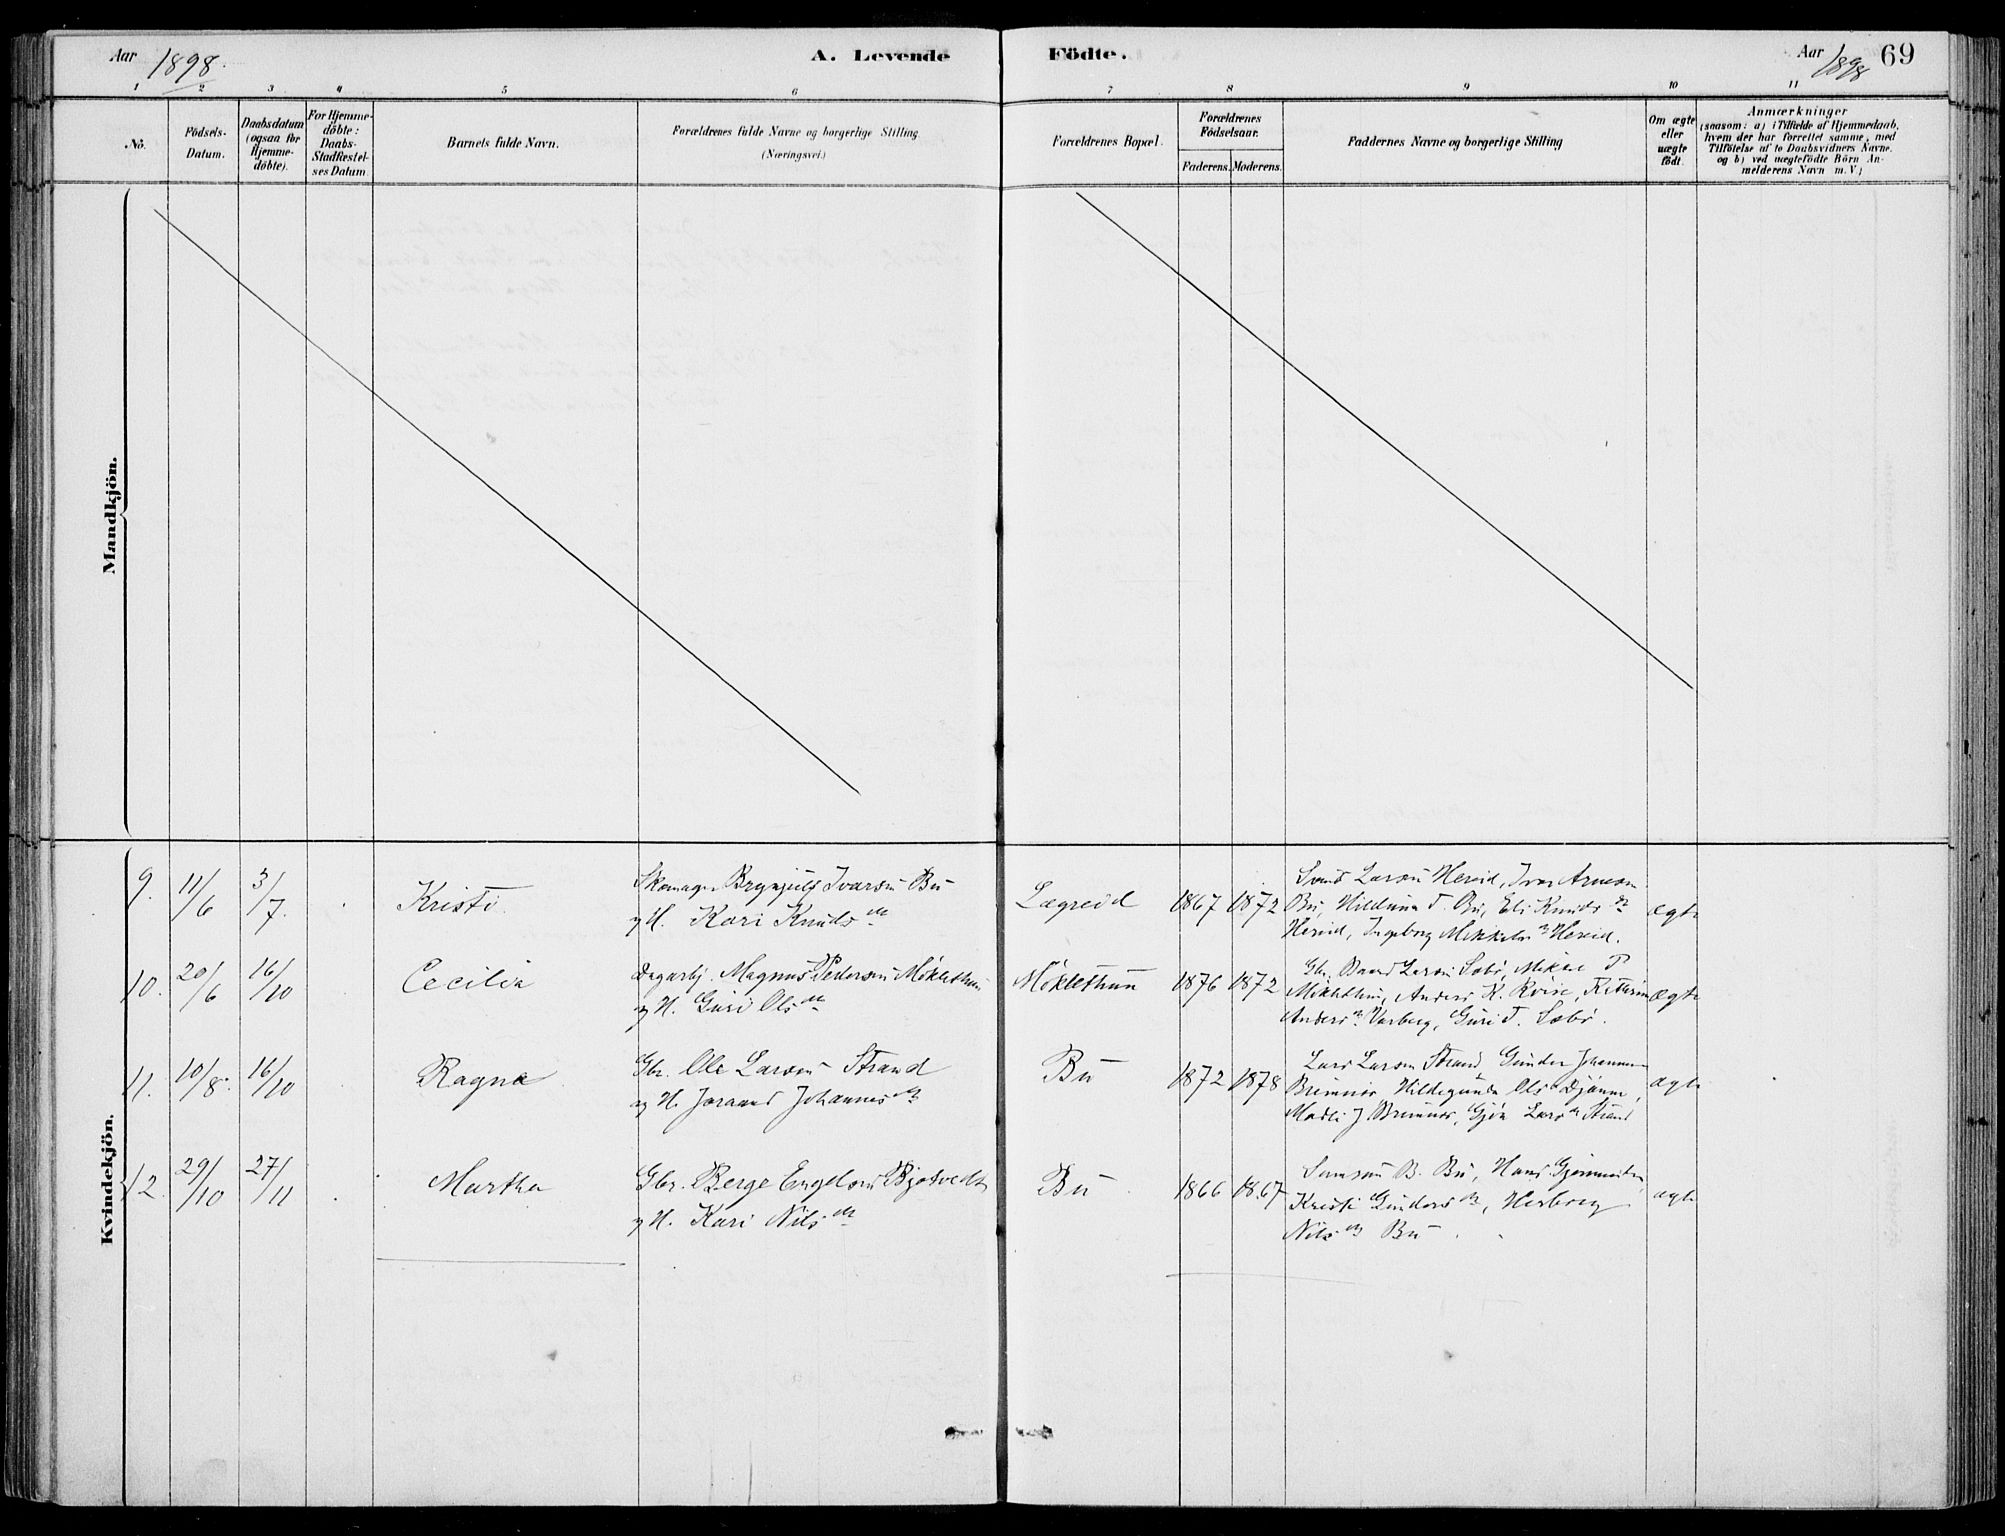 Aar 1898.
A. Levende Födte.
Aar 1898
69
1 2 3 4 5 6 7 8 9 10 11
No.
Födsels-Datum.
Daabsdatum (ogsaa for Hjemme-døbte).
For Hjemme-døbte: Daabs-Stadfæstel-ses Datum
Barnets fulde Navn.
Forældrenes fulde Navne og borgerlige Stilling (Næringsvei.)
Forældrenes Bopæl.
Forældrenes Födselsaar.
Faderens. Moderens.
Faddernes Navne og borgerlige Stilling
Om ægte eller uægte født.
Anmærkninger
(saasom: a) i Tilfælde af Hjemmedaab,
hvem der har forrettet samme, med
Tilföielse af to Daabsvidners Navne.
og b) ved uægtefödte Börn An-
melderens Navn m. V.)
Mandkjön.
Kvindekjön.
9. 11/6 3/7. Kristi
Skomager Brynjulf Ivarsen Bu
og H. Kari Knudsdr
Lægreid 1867 1872
Larsen Hereid, Ivar Arneson
Bu, T. Bu, Eli Knudsdr
Hereid, Ingeborg Hereid.
ægte
10. 20/6 16/10 Cecilia
Dagarbj. Magnus Pedersen Mæklethun
og H. Guri Olsdr
Møklethun 1876 1872
Gbr. Larsen Sæbø, Mikal P
Møklethun, Anders K. Kvise,
Andersdr Varberg, Guri T. Sæbø.
ægte
11. 10/8. 16/10 Ragna
Gbr. Ole Larsen Strand
og H. Joraand Johannesdr
Bu 1872 1878
Lars Larsen Strand, Gunder Johannesen
Brimnes, Hildegunda Olsdr Djønne,
Madli J Brimnes, Larsdr Strand
ægte
12. 29/10 27/11 Martha
Gbr. Berge Engelsen Bjotvedt
og H. Kari Nilsdr
Bu 1866 1867
Samson B. Bu, Hans
Kristi Gundersdr, Herborg
Nilsdr Bu
ægte